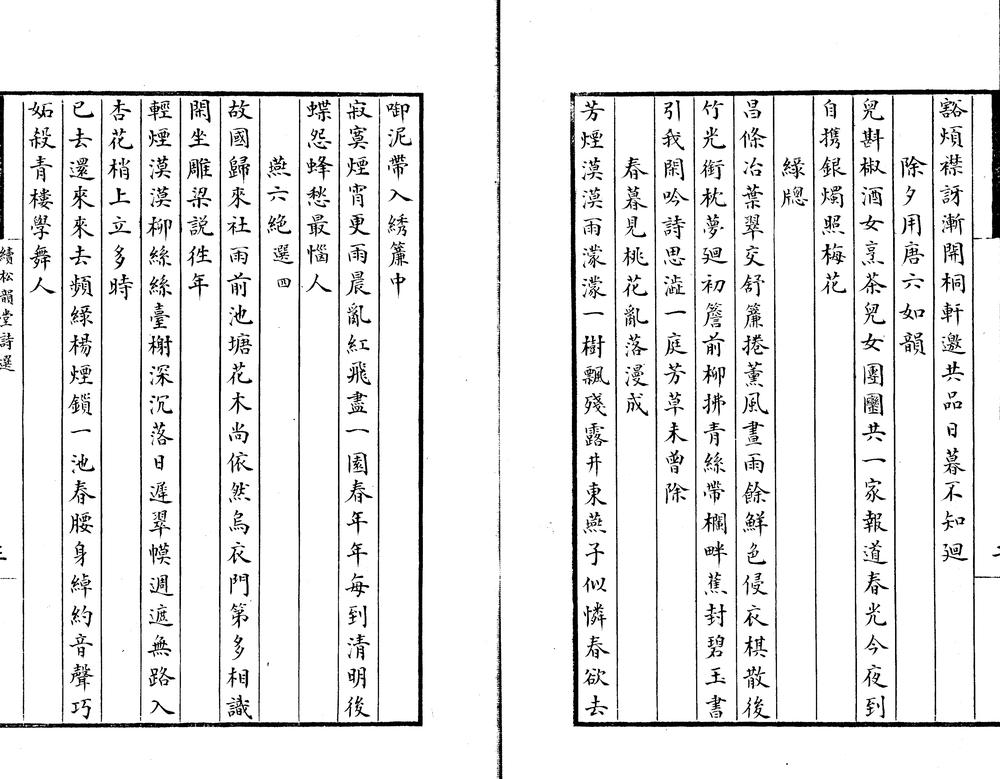 豁煩襟訝漸開桐軒邀共品日暮不知廻
除夕用唐六如韻
兒斟椒酒女烹茶兒女團圞共一家報道春光今夜到
自攜銀燭照梅花
綠牕
昌條冶葉翠交舒簾捲薰風晝雨餘鮮色侵衣棋散後
竹光銜枕夢廻初簷前柳拂青絲帶欄畔蕉封碧玉書
引我閑吟詩思澁一庭芳草未曾除
春暮見桃花亂落漫成
芳煙漠漠雨濛濛一樹飄殘露井東燕子似憐春欲去
啣泥帶入綉簾中
寂寞煙宵更雨晨亂紅飛盡一園春年年每到清明後
蝶怨蜂愁最惱人
燕六絕選四
故國歸來社雨前池塘花木尚依然烏衣門第多相識
閑坐雕梁説徃年
輕煙漠漠柳絲絲臺榭深沉落日遲翠幙週遮無路入
杏花梢上立多時
已去還來來去頻綠楊煙鎖一池春腰身綽約音聲巧
妬殺青樓學舞人
續松韻堂詩選